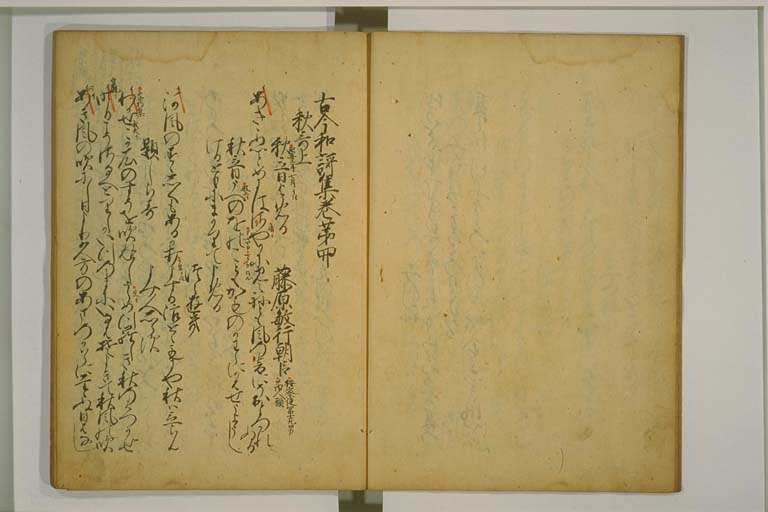 古今和謌集巻第四
秋哥上
秋立日よめる　藤原敏行朝臣
あききぬとめにはさやかに見えねとも風の音にそおとろかれぬる
秋立日うへのをのこともかものかはらにかはせうえうし
けるともにまかりてよめる
つらゆき
河風のすゝしくもあるかうちよする浪とゝもにや秋は立らん
題しらす　よみ人しらす
わかせこか衣のすそを吹返しうらめつらしき秋のはつかせ
きのふこそさなへとりしかいつのまにいなはそよきて秋風の吹
あき風の吹にし日より久方のあまのかはらにたゝぬ日はなし